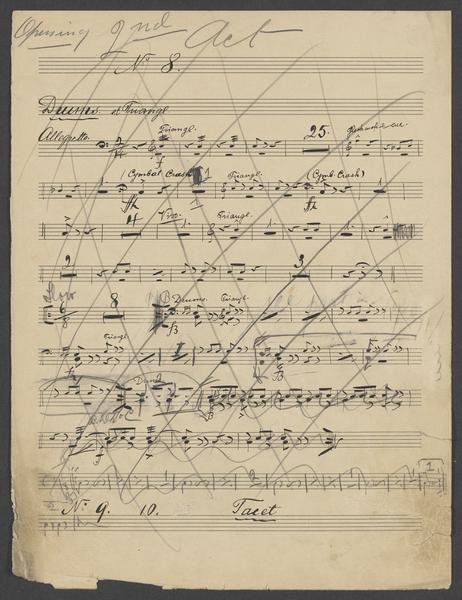 Opening 2nd Act
No 8.
Drums. et Triangl
Allegretto. 2/4 Triangl. 25.
(Cymbal Crash) 1 Triangl. (Cymb. Crash)
4 Triangl.
2 3
Slow
6/8 8 Drums. Triangl.
Triangl
No. 9. 10. Tacet